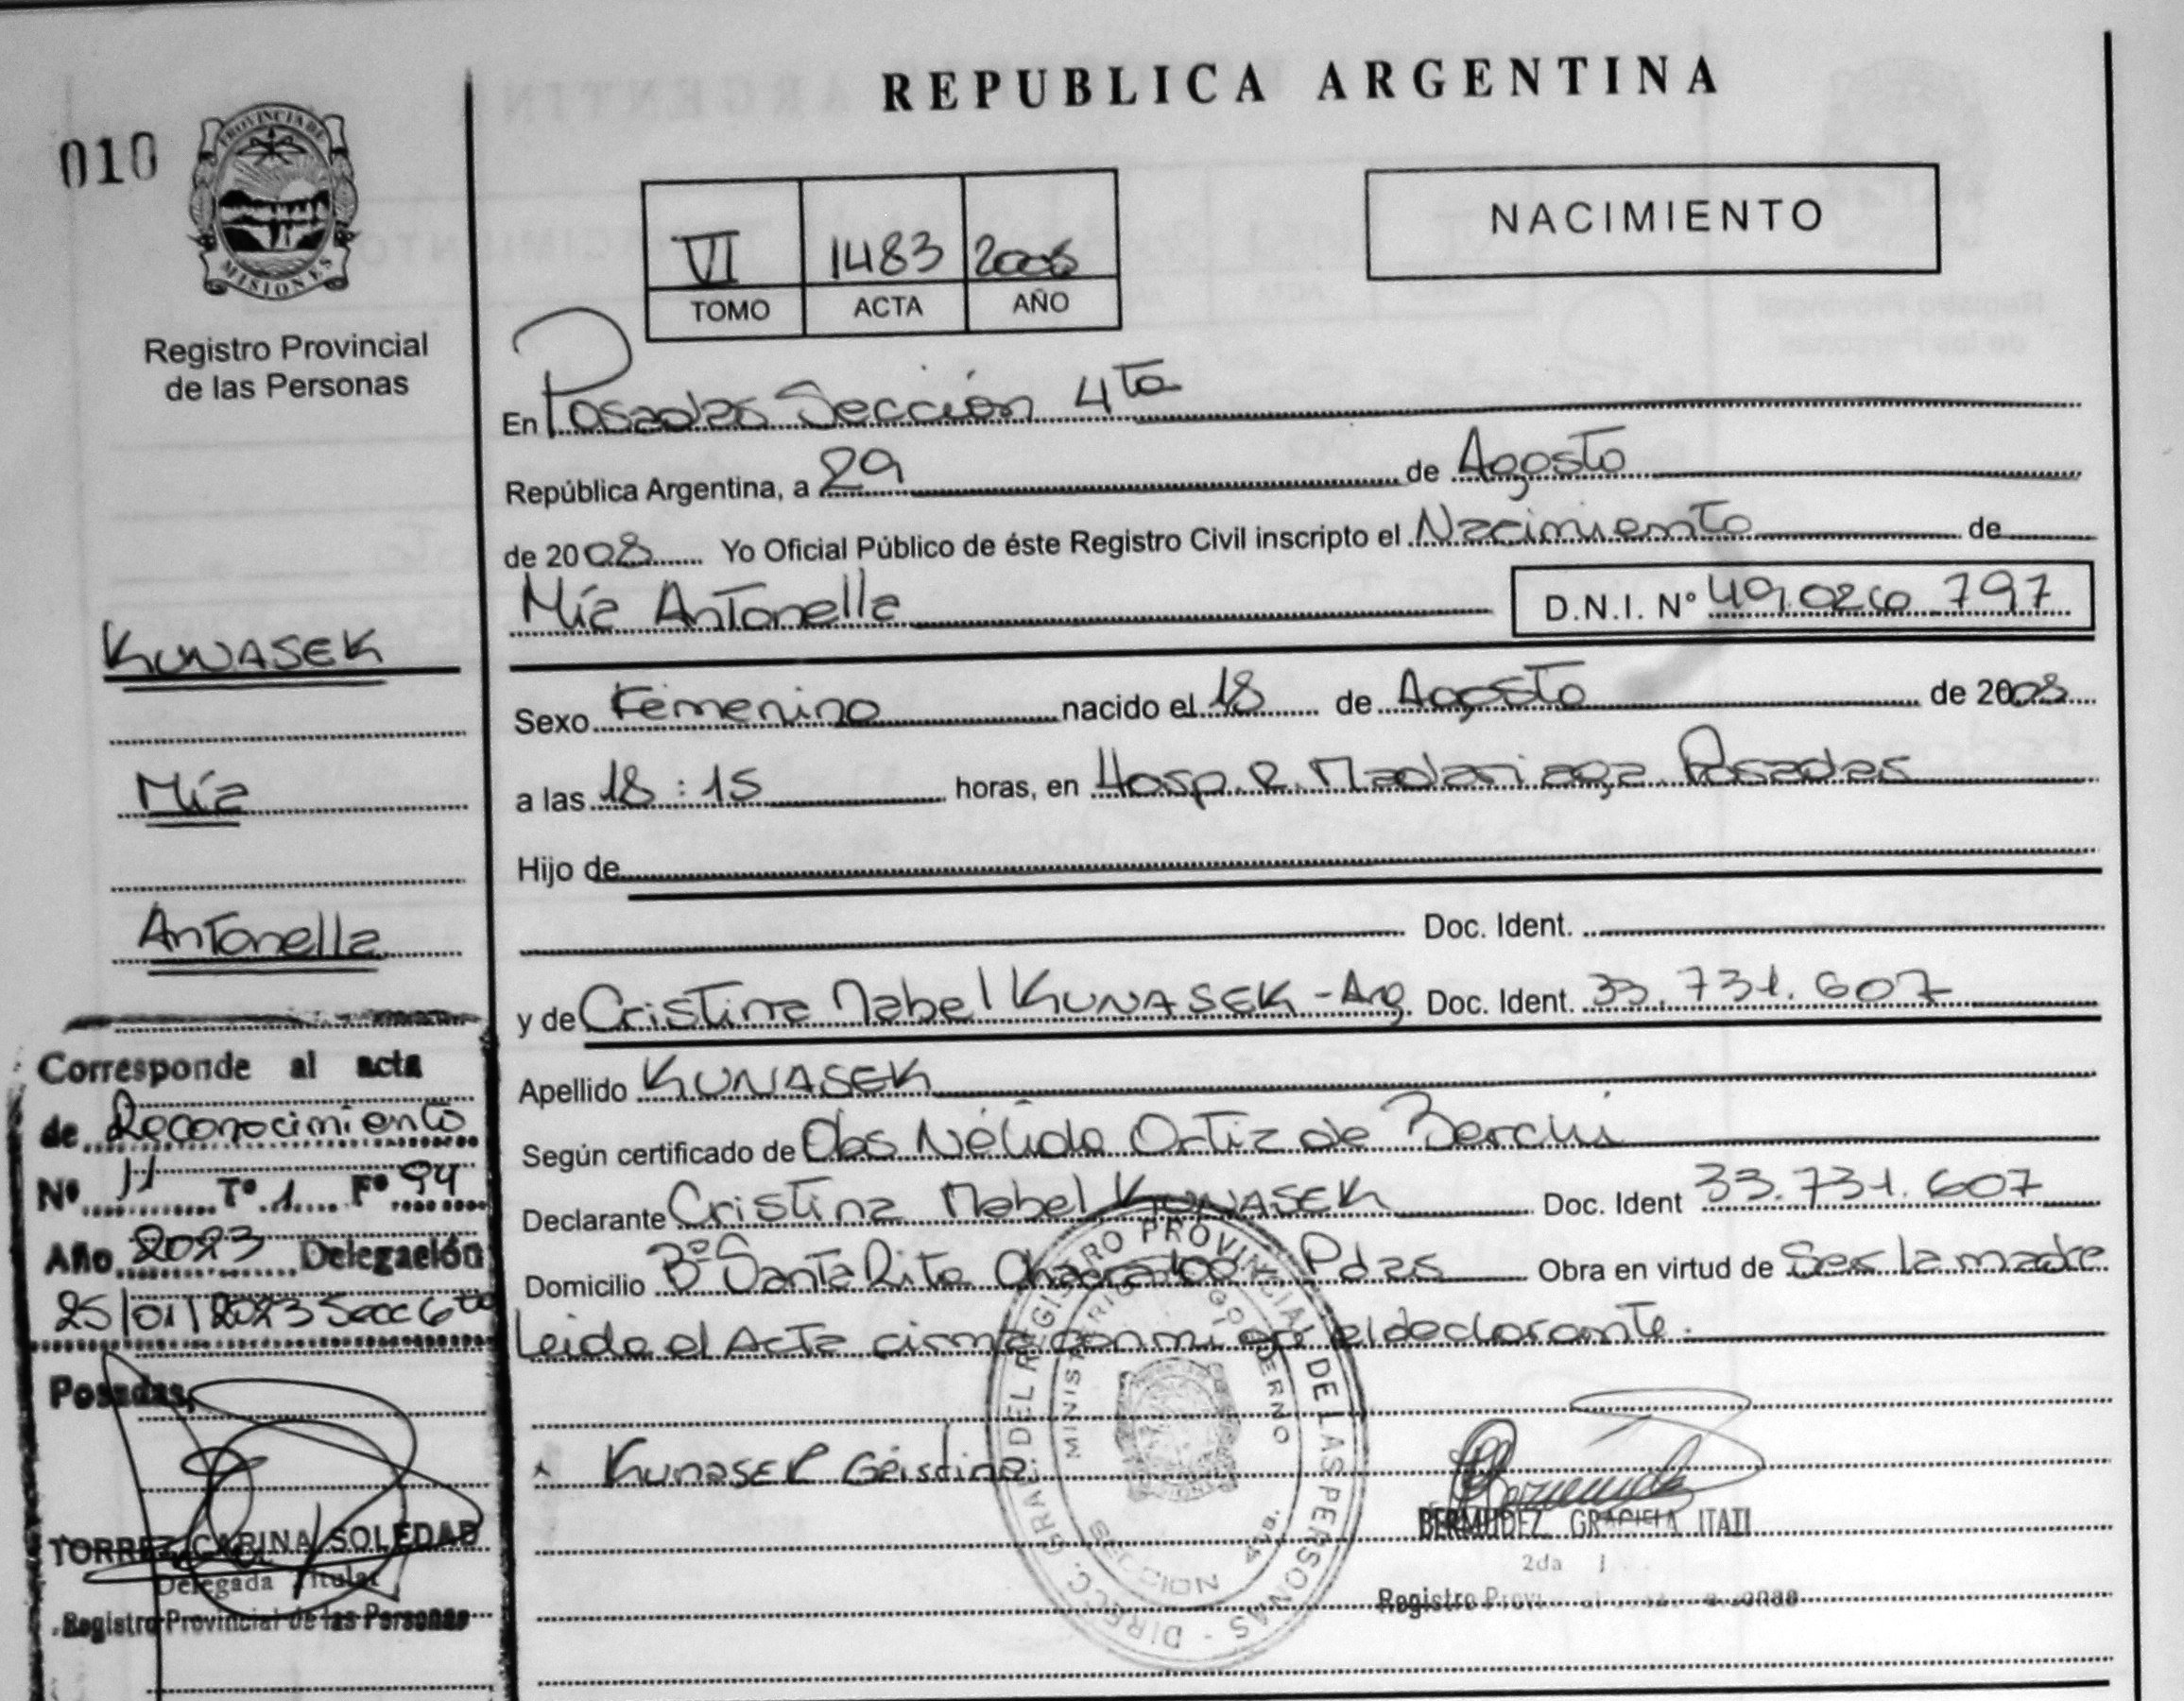 REPUBLICA ARGENTINA
010
PROVINCIA DE MISIONES
Registro Provincial
de las Personas
VI 1483 2008
TOMO ACTA AÑO
NACIMIENTO
En Posadas Sección 4ta
República Argentina, a 29 de Agosto
de 2008 Yo Oficial Público de éste Registro Civil inscripto el Nacimiento de
Mía Antonella D.N.I. Nº 49.026.797
Sexo Femenino nacido el 18 de Agosto de 2008
a las 18:15 horas, en Hosp. R. Madariaga. Posadas
Hijo de
Doc. Ident.
y de Cristina Mabel KUNASEK - Arg. Doc. Ident. 33.731.607
Apellido KUNASEK
Según certificado de Obs Nélida Ortiz de
Declarante Cristina Mabel KUNASEK Doc. Ident 33.731.607
Domicilio Bº Santa Rita Pdas Obra en virtud de Ser la madre
Leida el Acta firma con mi go el declarante.
Kunasek
BERMUDEZ GRACIELA ITATI
2da
Registro
DIREC. GRAL. DEL REGISTRO PROVINCIAL DE LAS PERSONAS
MINISTERIO GOBIERNO
SECCION 4ta.
KUNASEK
Mía
Antonella
Corresponde al acta
de Reconocimiento
Nº 11 Tº 1 Fº 94
Año 2023 Delegación
25/01/2023 Secc 6ta
Posadas,
TORREZ CARINA SOLEDAD
Delegada Titular
Registro Provincial de las Personas